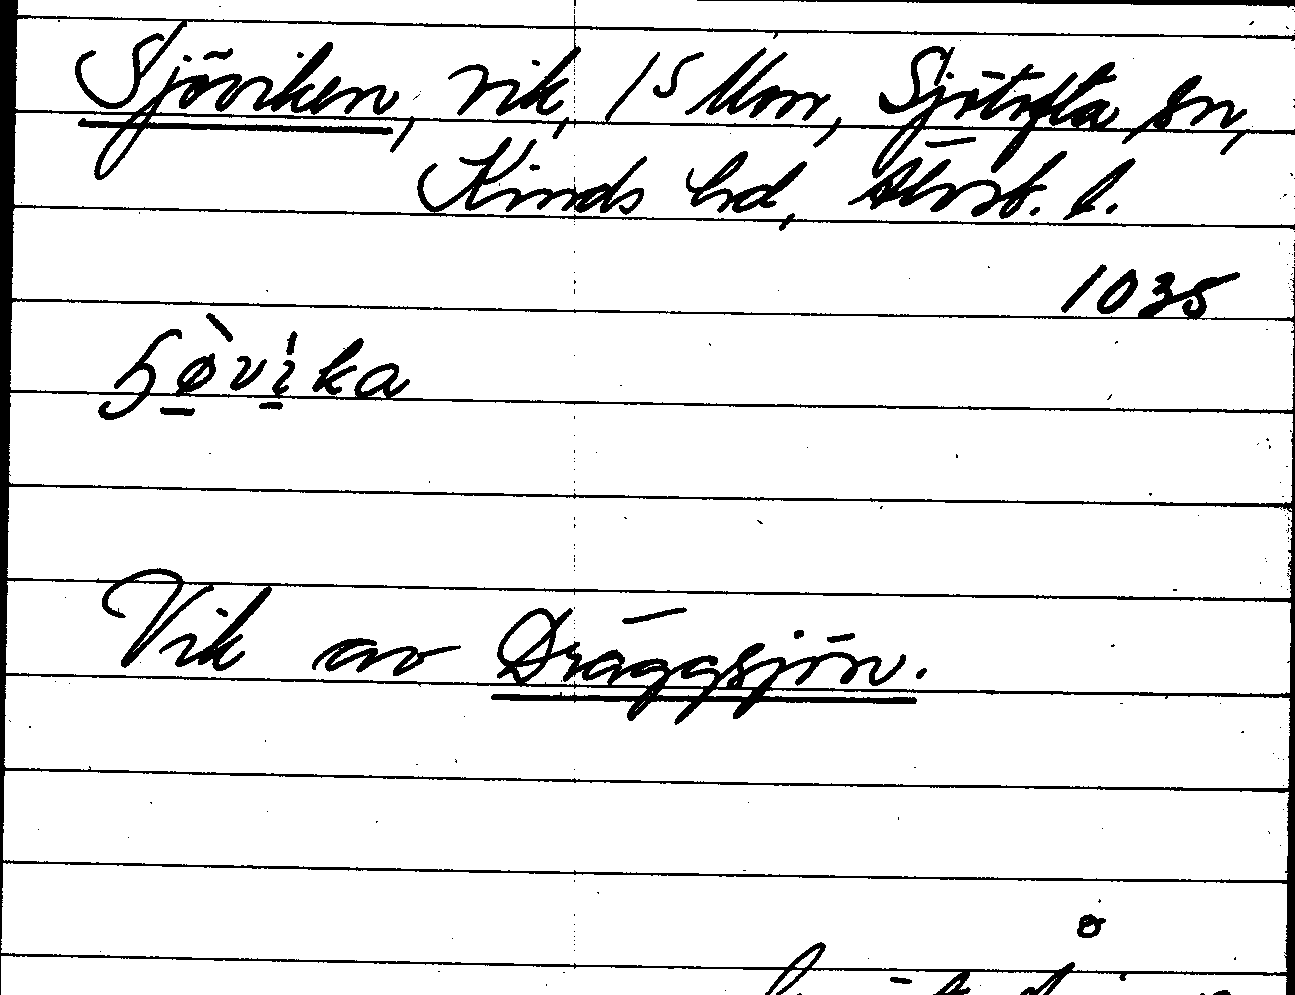 Sjöviken, vik, 15 Mon, Sjötofta sn,
Kinds hd, Älvsb. l.
1035
Vik av Dräggsjön.